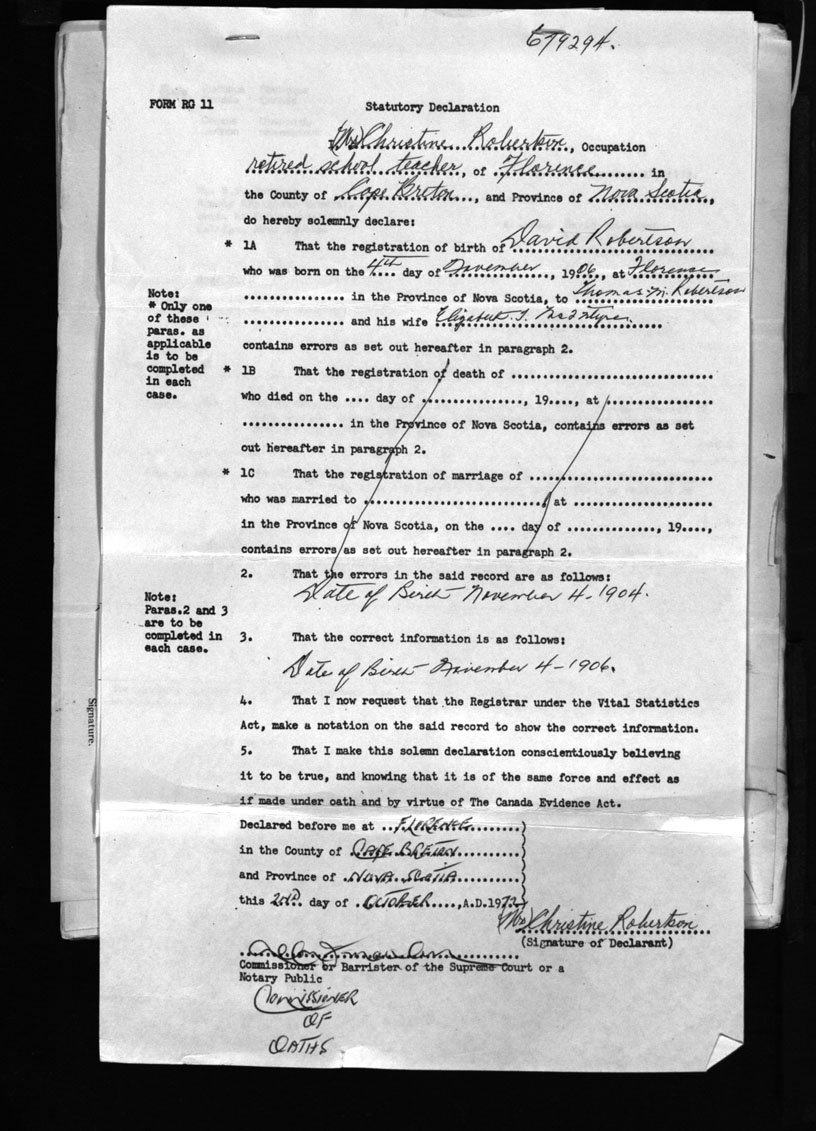 679294.
FORM RG 11
Statutory Declaration
(Mrs) Christine Robertson, Occupation
retired school teacher, of Florence in
the County of Cape Breton, and Province of Nova Scotia,
do hereby solemnly declare:
* 1A That the registration of birth of David Robertson
who was born on the 4th day of November, 1906, at Florence
in the Province of Nova Scotia, to Thomas M. Robertson
and his wife Elizabeth
contains errors as set out hereafter in paragraph 2.
Note:
* Only one
of these
paras. as
applicable
is to be
completed
in each
case.
* 1B That the registration of death of ..............................
who died on the .... day of ..............., 19...., at ................
................ in the Province of Nova Scotia, contains errors as set
out hereafter in paragraph 2.
* 1C That the registration of marriage of ...........................
who was married to ........................... at .....................
in the Province of Nova Scotia, on the .... day of .............., 19....,
contains errors as set out hereafter in paragraph 2.
2. That the errors in the said record are as follows:
Date of Birth November 4-1904.
Note:
Paras.2 and 3
are to be
completed in
each case.
3. That the correct information is as follows:
Date of Birth November 4-1906.
4. That I now request that the Registrar under the Vital Statistics
Act, make a notation on the said record to show the correct information.
5. That I make this solemn declaration conscientiously believing
it to be true, and knowing that it is of the same force and effect as
if made under oath and by virtue of The Canada Evidence Act.
Signature.
Declared before me at FLORENCE
in the County of CAPE BRETON
and Province of NOVA SCOTIA
this 2nd day of OCTOBER, A.D. 1972
(Mrs) Christine Robertson
(Signature of Declarant)
Commissioner or Barrister of the Supreme Court or a
Notary Public
COMMISSIONER
OF
OATHS